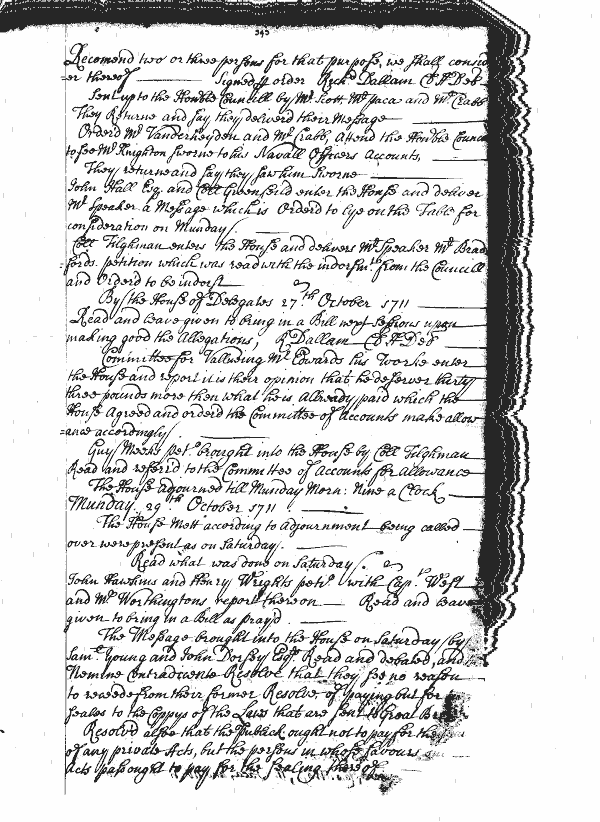 343
Recomend two or three persons for that purpose, we shall consid
=er thereof Signed p order Richd Dallam Cl H Del
Sent up to the Honble Councill by Mr Scott Mr Jaca and Mr Crabb
They Returne and say they deliverd their Message
Orderd Mr Vanderheyden and Mr Crabb Attend the Honble Counc
to see Mr Knighton sworne to his Navall Officers Accounts,
They returne and say they saw him Sworne
John Hall Esq. and Coll Greenfeild enter the House and deliver
Mr Speaker a Message which is Orderd to lye on the Table for
consideration on Munday.
Coll Tilghman enters the House and delivers Mr Speaker Mr Brad
fords petition which was read with the indorsmt from the Councill
and Orderd to be indorst
By the House of Delegates 27th October 1711
Read and leave given to bring in a Bill next Sessions upon
making good the Allegations, R Dallam Cl H Del
Committee for Vallueing Mr Edwards his Worke enter
the House and report it is their opinion that he deserves thirty
three pounds more then what he is Already paid which the
House Agreed and orderd the Committee of Accounts make allow
=ance accordingly
Guy Meeks petn brought into the House by Coll Tilghman
Read and referrd to the Committee of Accounts for allowance
The House adjourned till Munday Morn: Nine a Clock
Munday 29th October 1711
The House Mett according to adjournment being called
over were present as on Saturday.
Read what was done on Saturday.
John Hawkins and Henry Wrights petn with Capt West
and Mr Worthingtons report thereon Read and leave
given to bring in a Bill as prayd.
The Message brought into the House on Saturday by
Saml Young and John Dorsey Esqrs Read and debated, and
Nemine Contradicente Resolve that they see no reason
to recede from their former Resolve, of paying but for
seales to the Coppys of the Laws that are sent to Great Br
Resolvd also that the publick ought not to pay for the
of any private Acts, but the persons in whose favours
Acts pass ought to pay for the sealing thereof